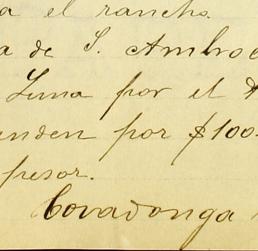 a el rancho.
a de S. Ambro
Luna por el
enden por $100
pesos.
Covadonga